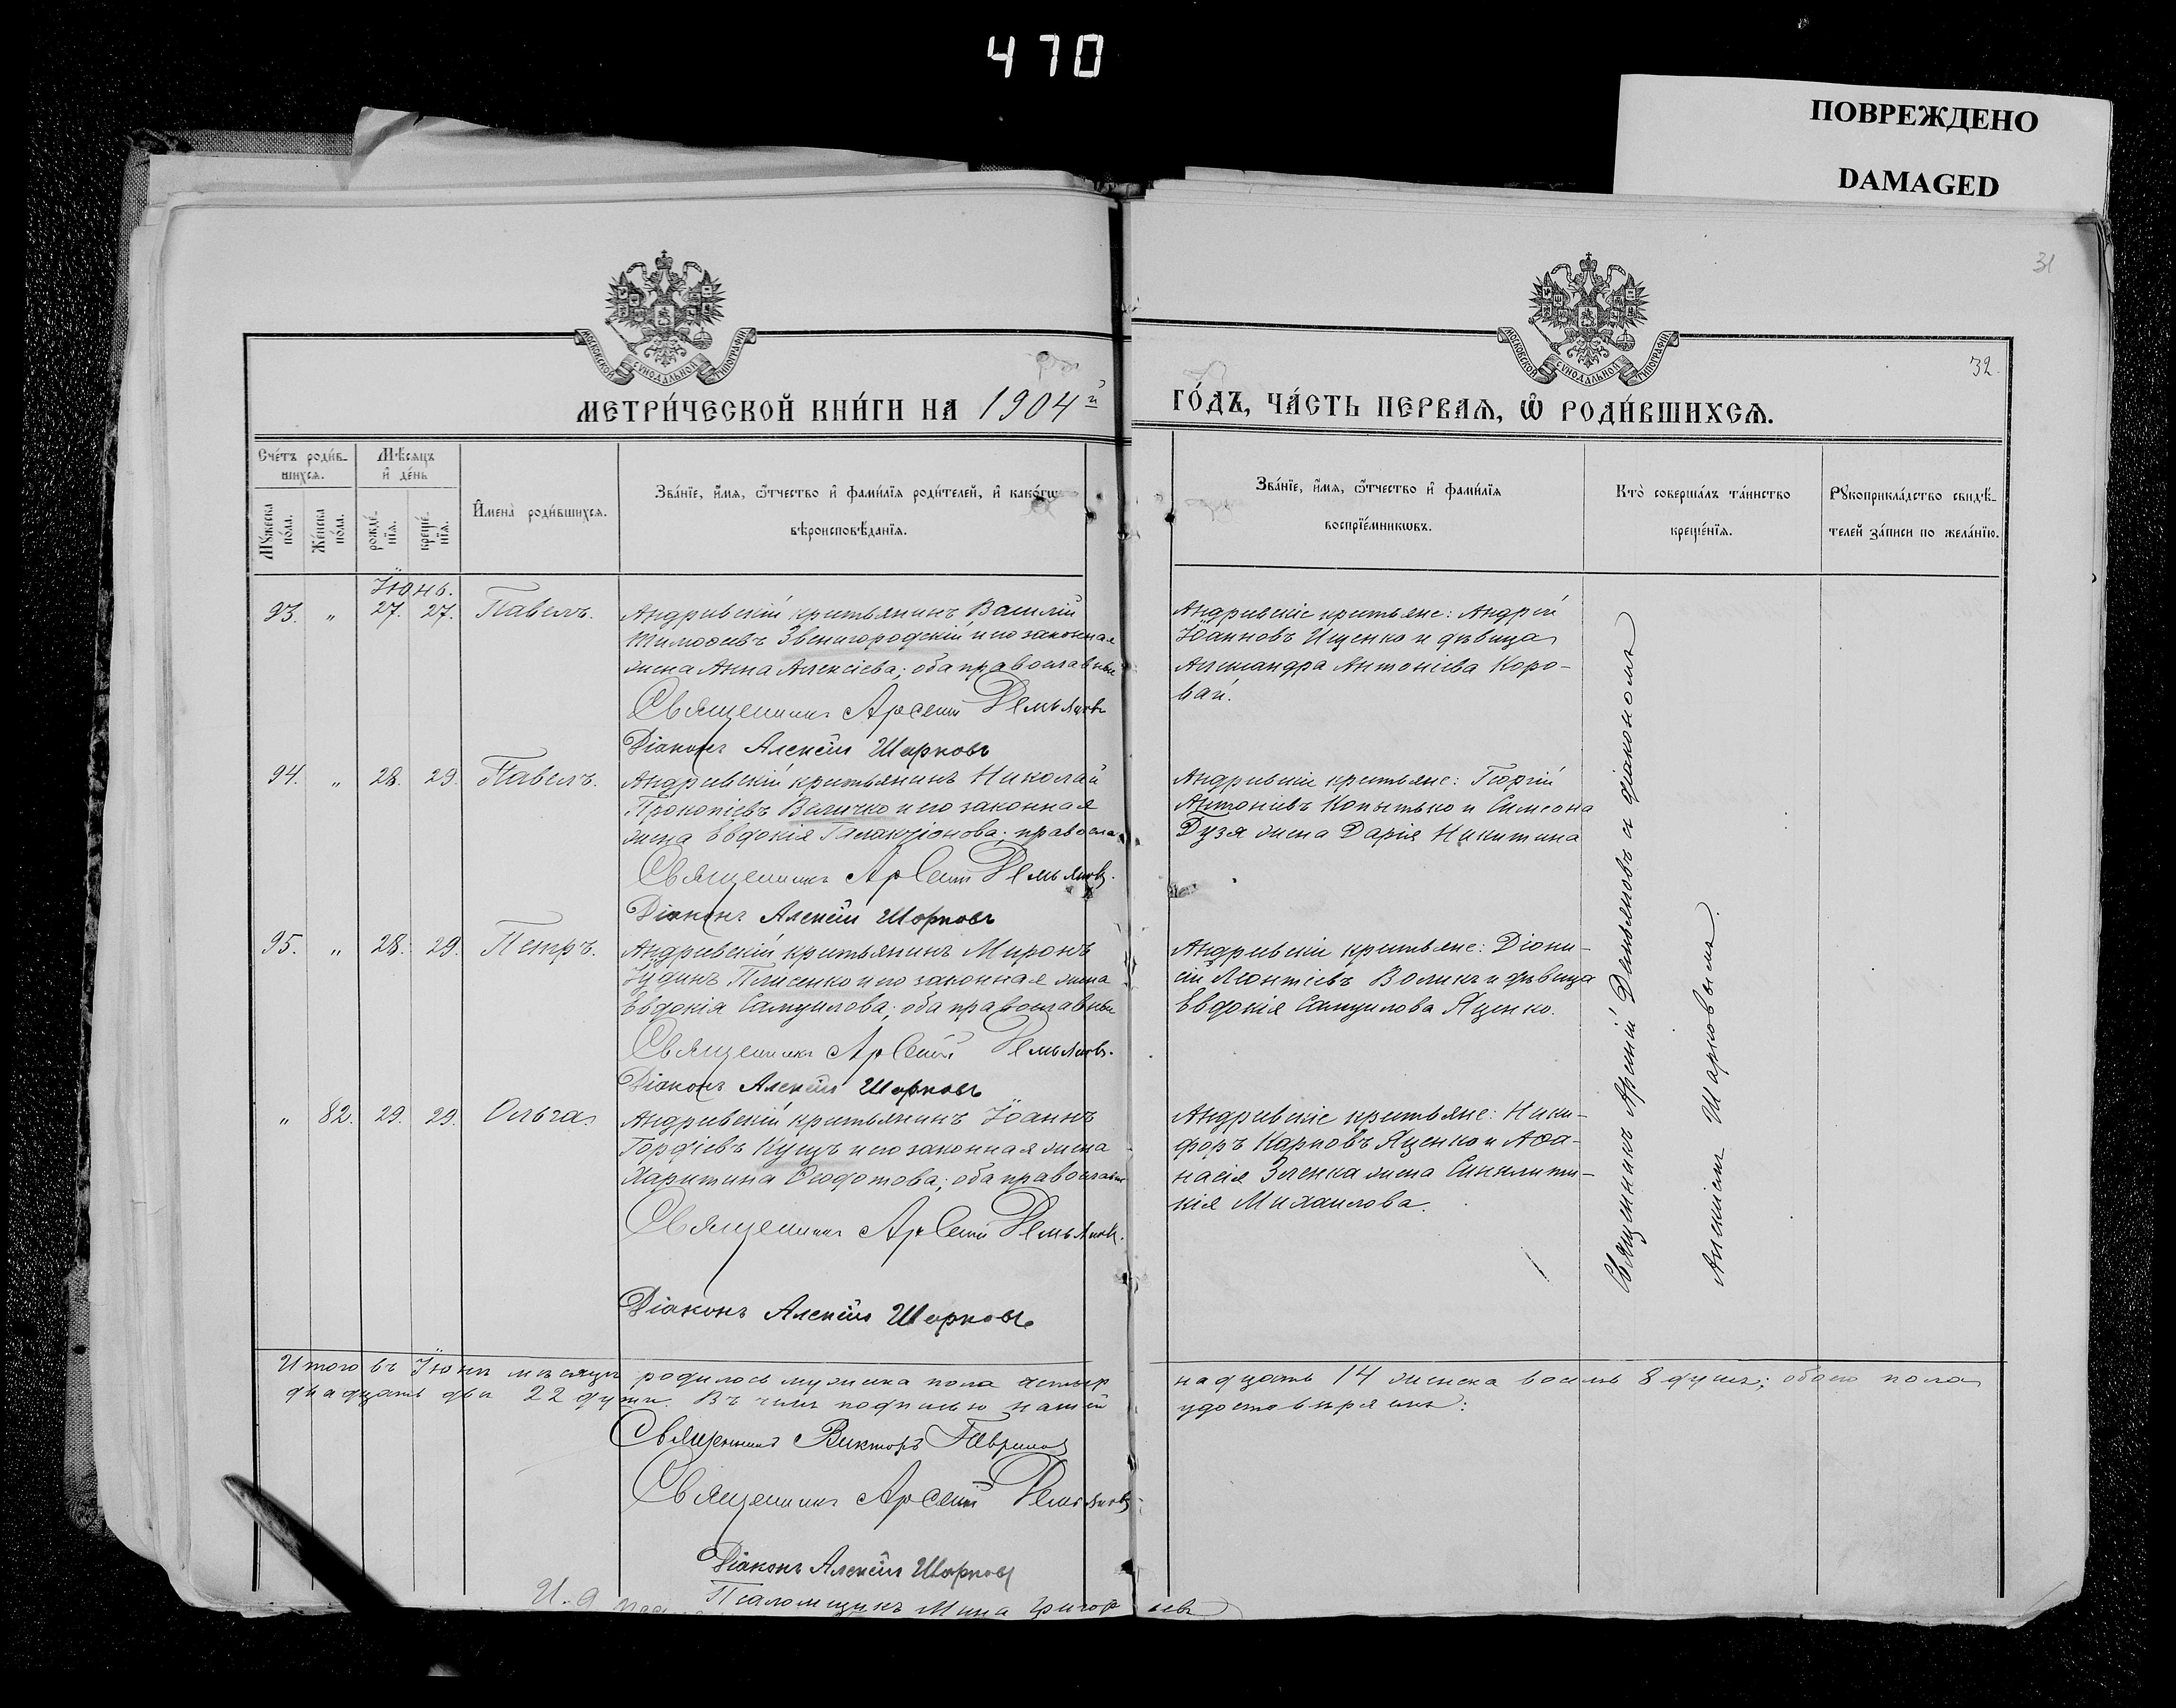 470
ПОВРЕЖДЕНО
DAMAGED
31
32.
МОСКОВСКОЙ СѴНОДАЛЬНОЙ ТИПОГРАФІИ
МОСКОВСКОЙ СѴНОДАЛЬНОЙ ТИПОГРАФІИ
МЕТРИ́ЧЕСКОЙ КНИ́ГИ НА 1904й ГО́ДЪ, ЧА́СТЬ ПЕРВАѦ, Ѿ РОДИ́ВШИХСѦ.
Сче́тъ роди́в-
шихсѧ.
Мѣсѧцъ
и де́нь
Мꙋжеска по́ла.
Же́нска по́ла.
рожде́-
нїѧ.
креще́-
нїѧ.
И҆мена̀ роди́вшихсѧ.
Зва́нїе, и҆́мѧ, ѿтчество и҆ фами́лїѧ роди́телей, и҆ како́гѡ
вѣроисповѣ́данїѧ.
Зва́нїе, и҆́мѧ, ѿтчество и҆ фами́лїѧ
воспрїе́мникѡвъ.
Кто̀ соверша́лъ та́инство
креще́нїѧ.
Рꙋкоприкла́дство свидѣ́-
телей за́писи по жела́нїю.
Іюнь.
93. " 27. 27. Павелъ.
Андреевскій крестьянинъ Василій
Тимоѳеевъ Звенигородскій и его законная
жена Анна Алексіева; оба православные
Священникъ Арсеній Демьяновъ
Діаконъ Алексій Шарковъ
Андреевскіе крестьяне: Андрей
Іоанновъ Ищенко и дѣвица
Александра Антоніева Коро-
вай.
94. " 28. 29. Павелъ.
Андреевскій крестьянинъ Николай
Прокопіевъ Величко и его законная
жена Евдокія Галактіонова; правосла.
Священникъ Арсеній Демьяновъ.
Діаконъ Алексій Шарковъ
Андреевскіе крестьяне: Георгій
Антоніевъ Копытько и Симеона
Дузя жена Дарія Никитина
95. " 28. 29. Петръ.
Андреевскій крестьянинъ Миронъ
Іудинъ Плисенко и его законная жена
Евдокія Самуилова; оба православные
Священникъ Арсеній Демьяновъ.
Діаконъ Алексій Шарковъ
Андреевскіе крестьяне: Діони-
сій Леонтіевъ Воликъ и дѣвица
Евдокія Самуилова Яценко.
" 82. 29. 29. Ольга.
Андреевскій крестьянинъ Іоаннъ
Гордіевъ Кущъ и его законная жена
Харитина Ѳеодотова; оба православн
Священникъ Арсеній Демьяновъ.
Діаконъ Алексій Шарковъ
Андреевскіе крестьяне: Ники-
форъ Карповъ Яценко и Аѳа-
насія Зленка жена Синклити-
кія Михаилова.
Священникъ Арсеній Демьяновъ съ діакономъ
Алексіемъ Шарковымъ.
Итого въ Іюнѣ мѣсяцѣ родилось мужеска пола четыр
надцать 14 женска восемь 8 душъ; обоего пола
двадцать двѣ 22 души. Въ чемъ подписью нашей
удостовѣряемъ:
Священникъ Викторъ Гаврилов
Священникъ Арсеній Демьяновъ
Діаконъ Алексій Шарковъ
И. д.
Псаломщикъ Мина Григорьевъ